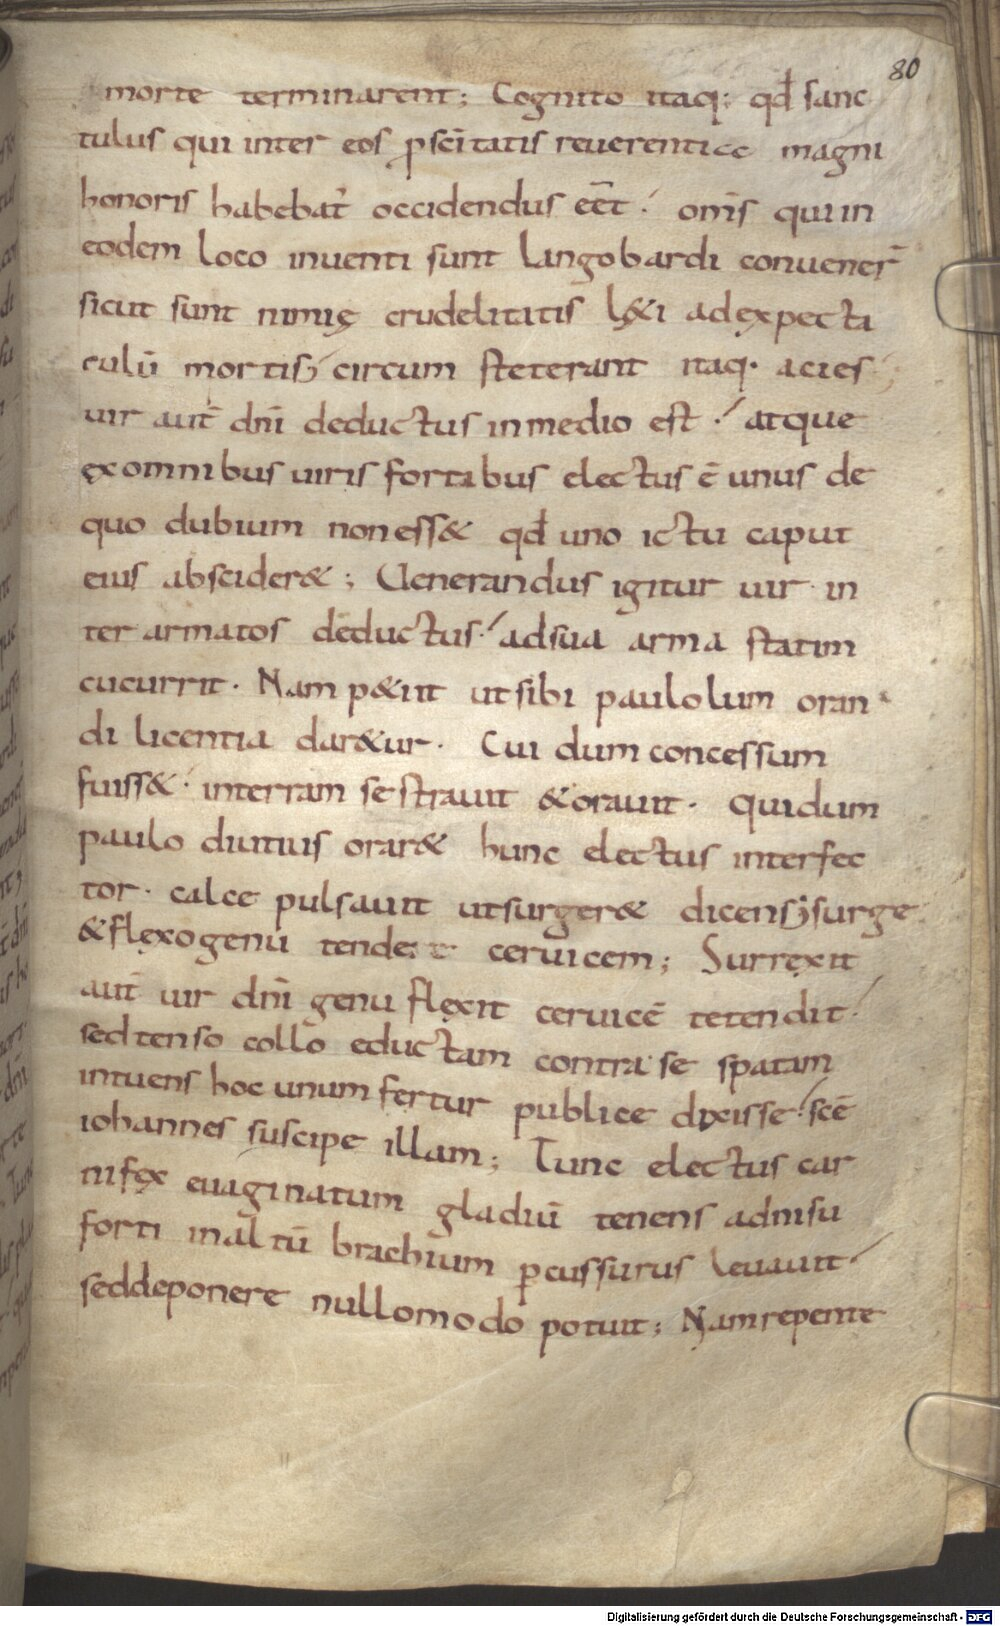 80
morte terminarent; Cognito itaq; qđ sanc
tulus qui inter eos ꝓ scītatis reuerentiae magni
honoris habebat̄ occidendus eēt · om̄s qui in
eodem loco inuenti sunt langobardi conuener̄
sicut sunt nimię crudelitatis l&i ad expecta
culū mortis, circum steterant itaq· acies
uir aut̄ dn̄i deductus in medio est · atque
ex omnibus uiris fortibus electus ē unus de
quo dubium non ess& qđ uno ictu caput
eius abscider& ; Uenerandus igitur uir in
ter armatos deductus · ad sua arma statim
cucurrit · Nam p&iit ut sibi paulolum oran
di licentia dar&ur · Cui dum concessum
fuiss& · in terram se strauit & orauit · Qui dum
paulo diutius orar& hunc electus interfec
tor · calce pulsauit ut surger& dicens, surge
& flexo genu tende ceruicem ; Surrexit
aut̄ uir dn̄i genu flexit ceruicē tetendit ·
sed tenso collo eductam contra se spatam
intuens hoc unum fertur publice dixisse · scē
iohannes suscipe illam ; Tunc electus car
nifex euaginatum gladiū tenens adnisu
forti in altū brachium ꝑcussurus leuauit ·
sed deponere nullomodo potuit ; Nam repente
Digitalisierung gefördert durch die Deutsche Forschungsgemeinschaft - DFG